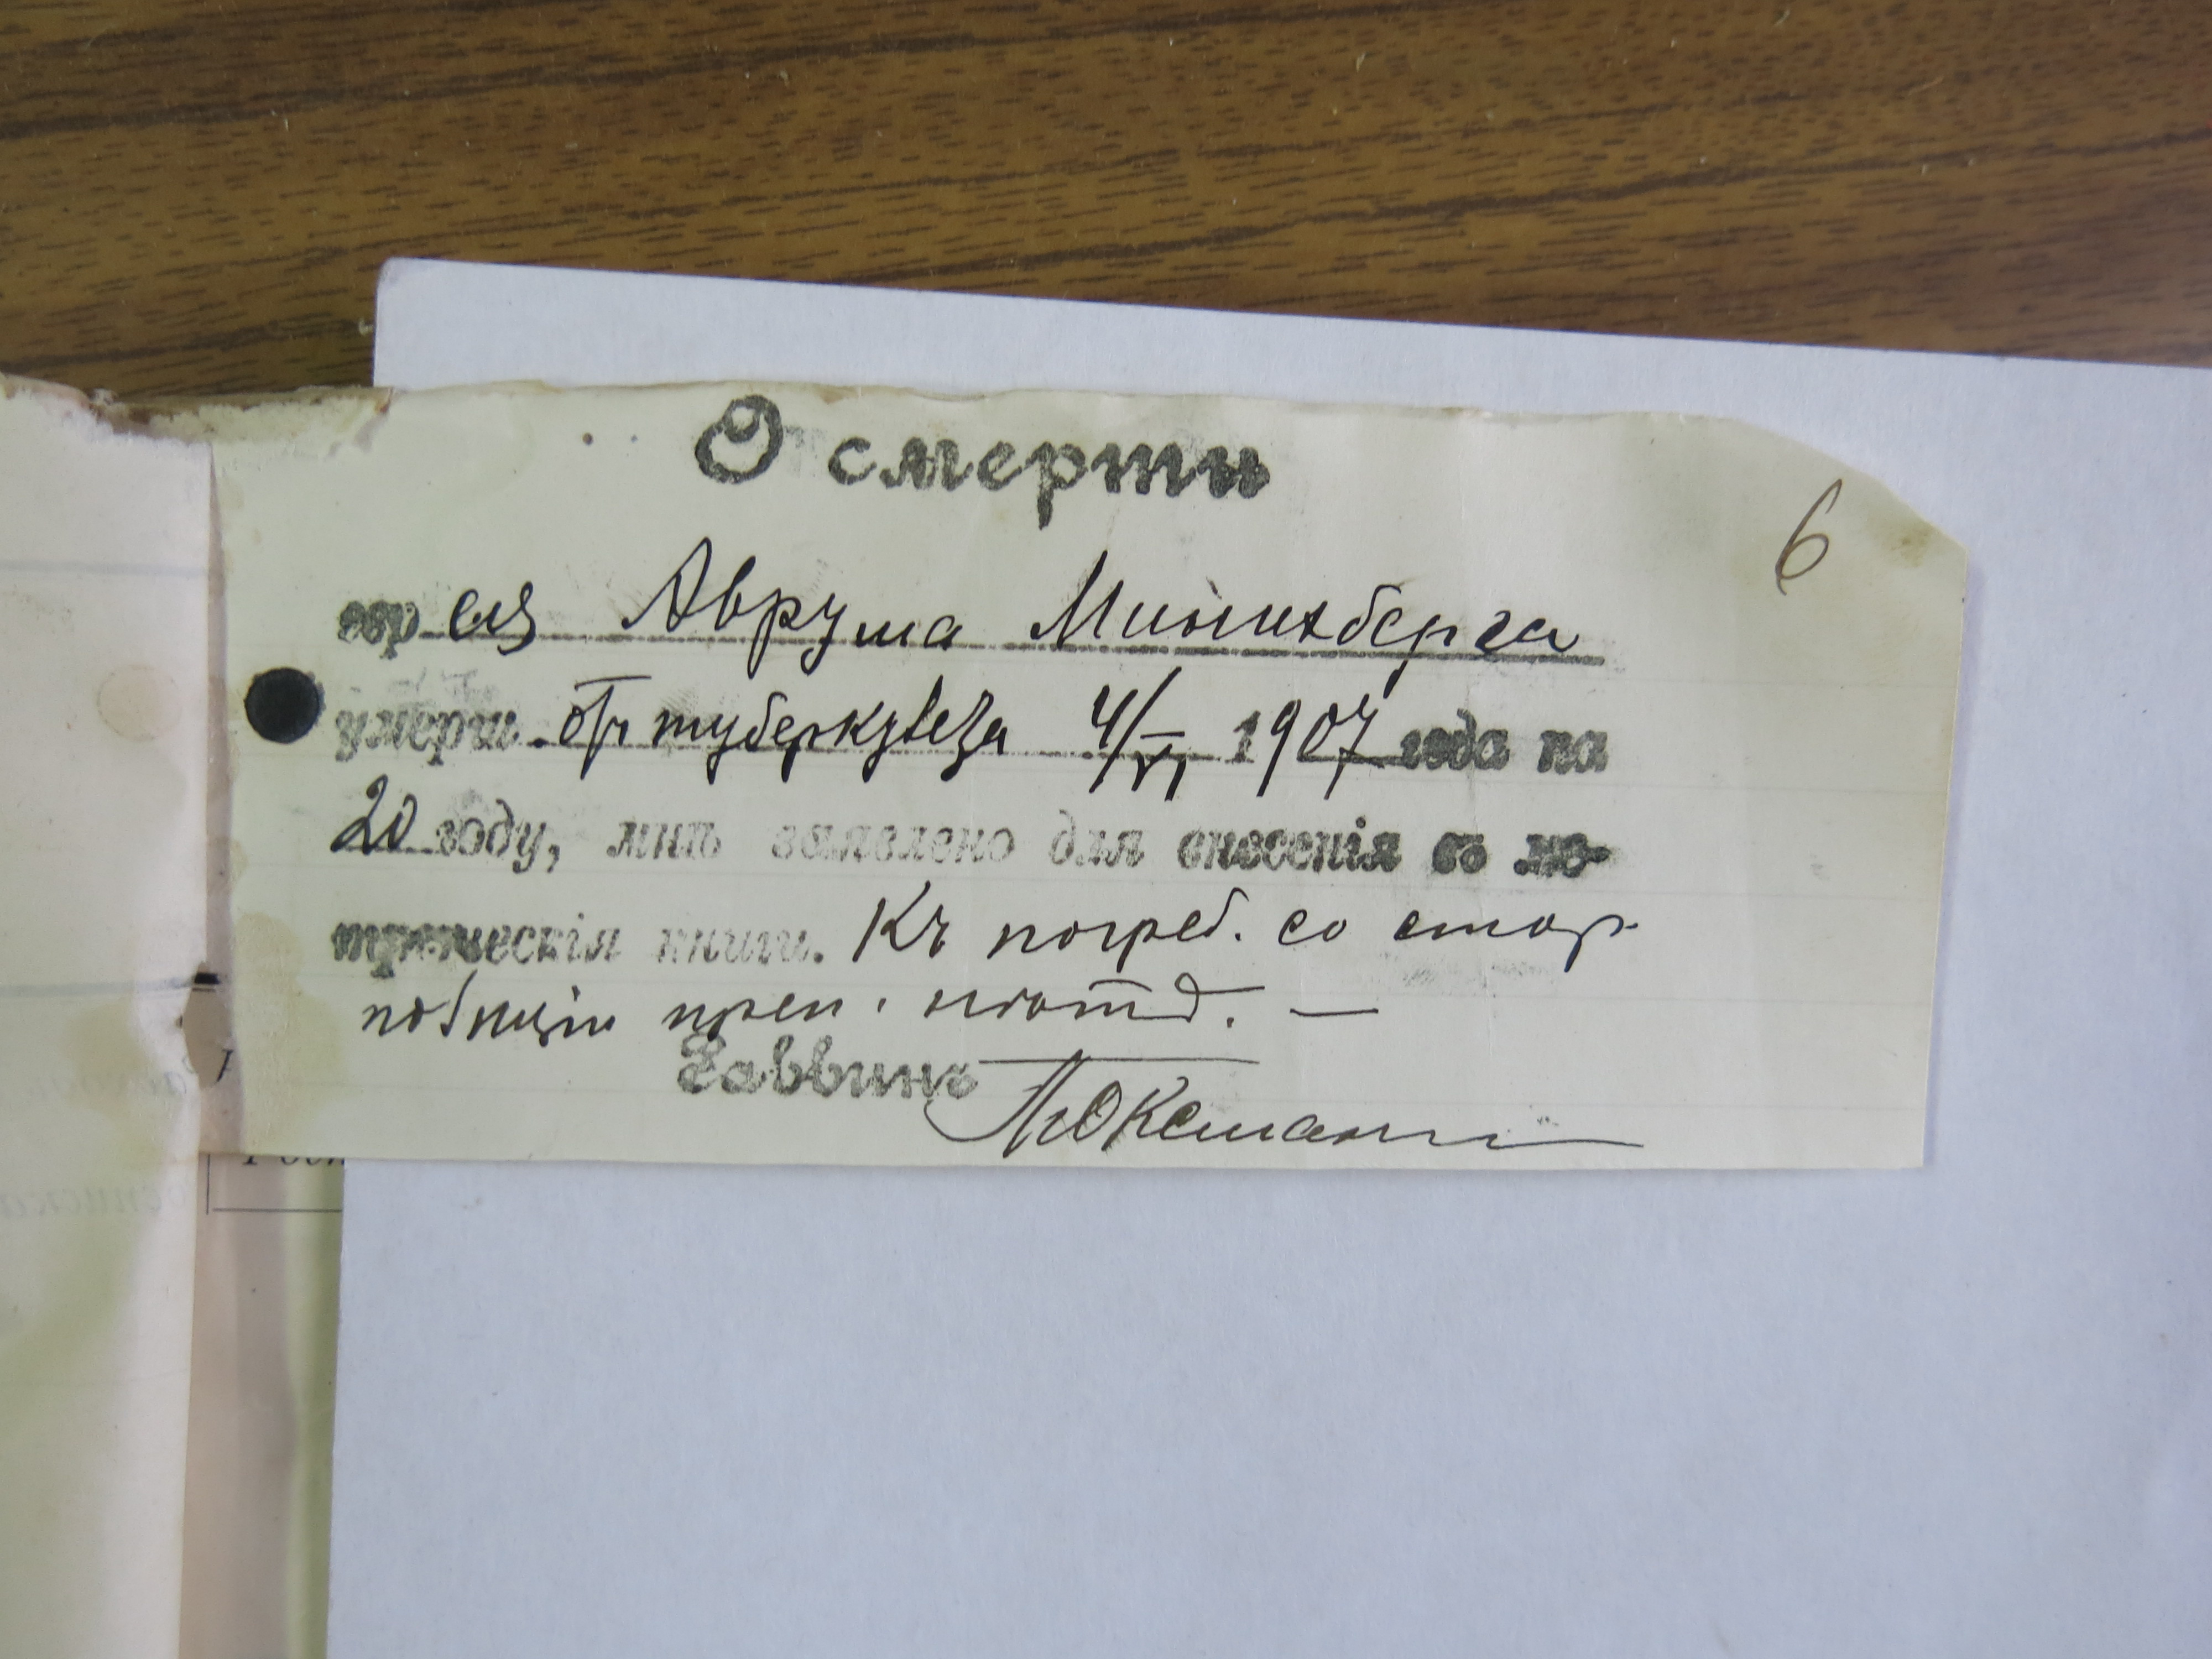 О смерти
6
евр ея Аврума Миниихберга
умерш. отъ туберкулеза 4/VI 1907 года на
20 году, мнѣ заявлено для внесенія въ ме-
трическія книги. Къ погреб. со стор.
полиціи преп.
Раввинъ